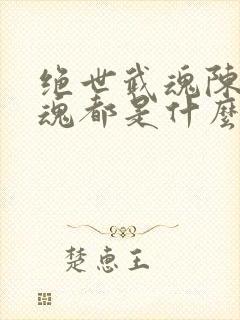 绝世武魂陈
魂都是什麽
楚惠王